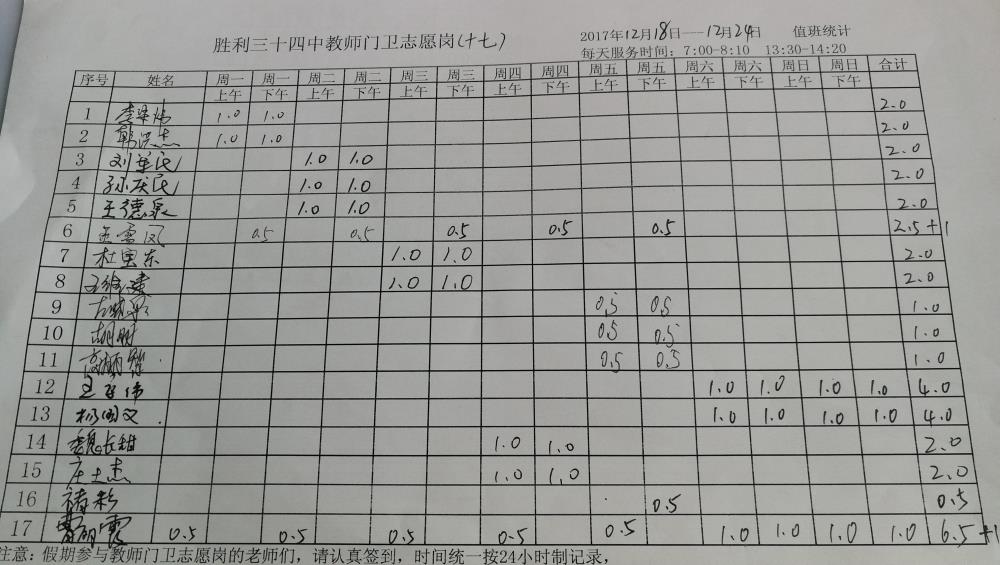 胜利三十四中教师门卫志愿岗(十七) 2017年12月18日——12月24日 值班统计
每天服务时间：7:00-8:10 13:30-14:20
序号 姓名 周一 周一 周二 周二 周三 周三 周四 周四 周五 周五 周六 周六 周日 周日 合计
上午 下午 上午 下午 上午 下午 上午 下午 上午 下午 上午 下午 上午 下午
1 1.0 1.0 2.0
2 韩洪杰 1.0 1.0 2.0
3 刘军民 1.0 1.0 2.0
4 孙庆民 1.0 1.0 2.0
5 王德泉 1.0 1.0 2.0
6 雪凤 0.5 0.5 0.5 0.5 0.5 2.5+1
7 杜宝东 1.0 1.0 2.0
8 1.0 1.0 2.0
9 0.5 0.5 1.0
10 0.5 0.5 1.0
11 0.5 0.5 1.0
12 1.0 1.0 1.0 1.0 4.0
13 杨国文 1.0 1.0 1.0 1.0 4.0
14 魏长钳 1.0 1.0 2.0
15 庄土杰 1.0 1.0 2.0
16 0.5 0.5
17 0.5 0.5 0.5 0.5 0.5 1.0 1.0 1.0 1.0 6.5+1
注意：假期参与教师门卫志愿岗的老师们，请认真签到，时间统一按24小时制记录，